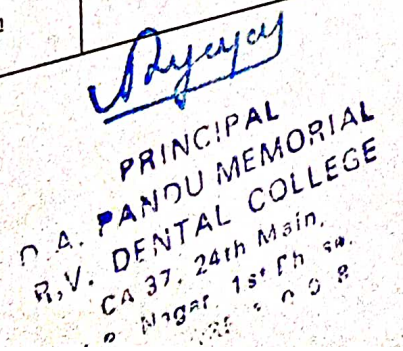 PRINCIPAL
D. A. PANDU MEMORIAL
R.V. DENTAL COLLEGE
CA 37, 24th Main,
Nagar, 1st Phase,